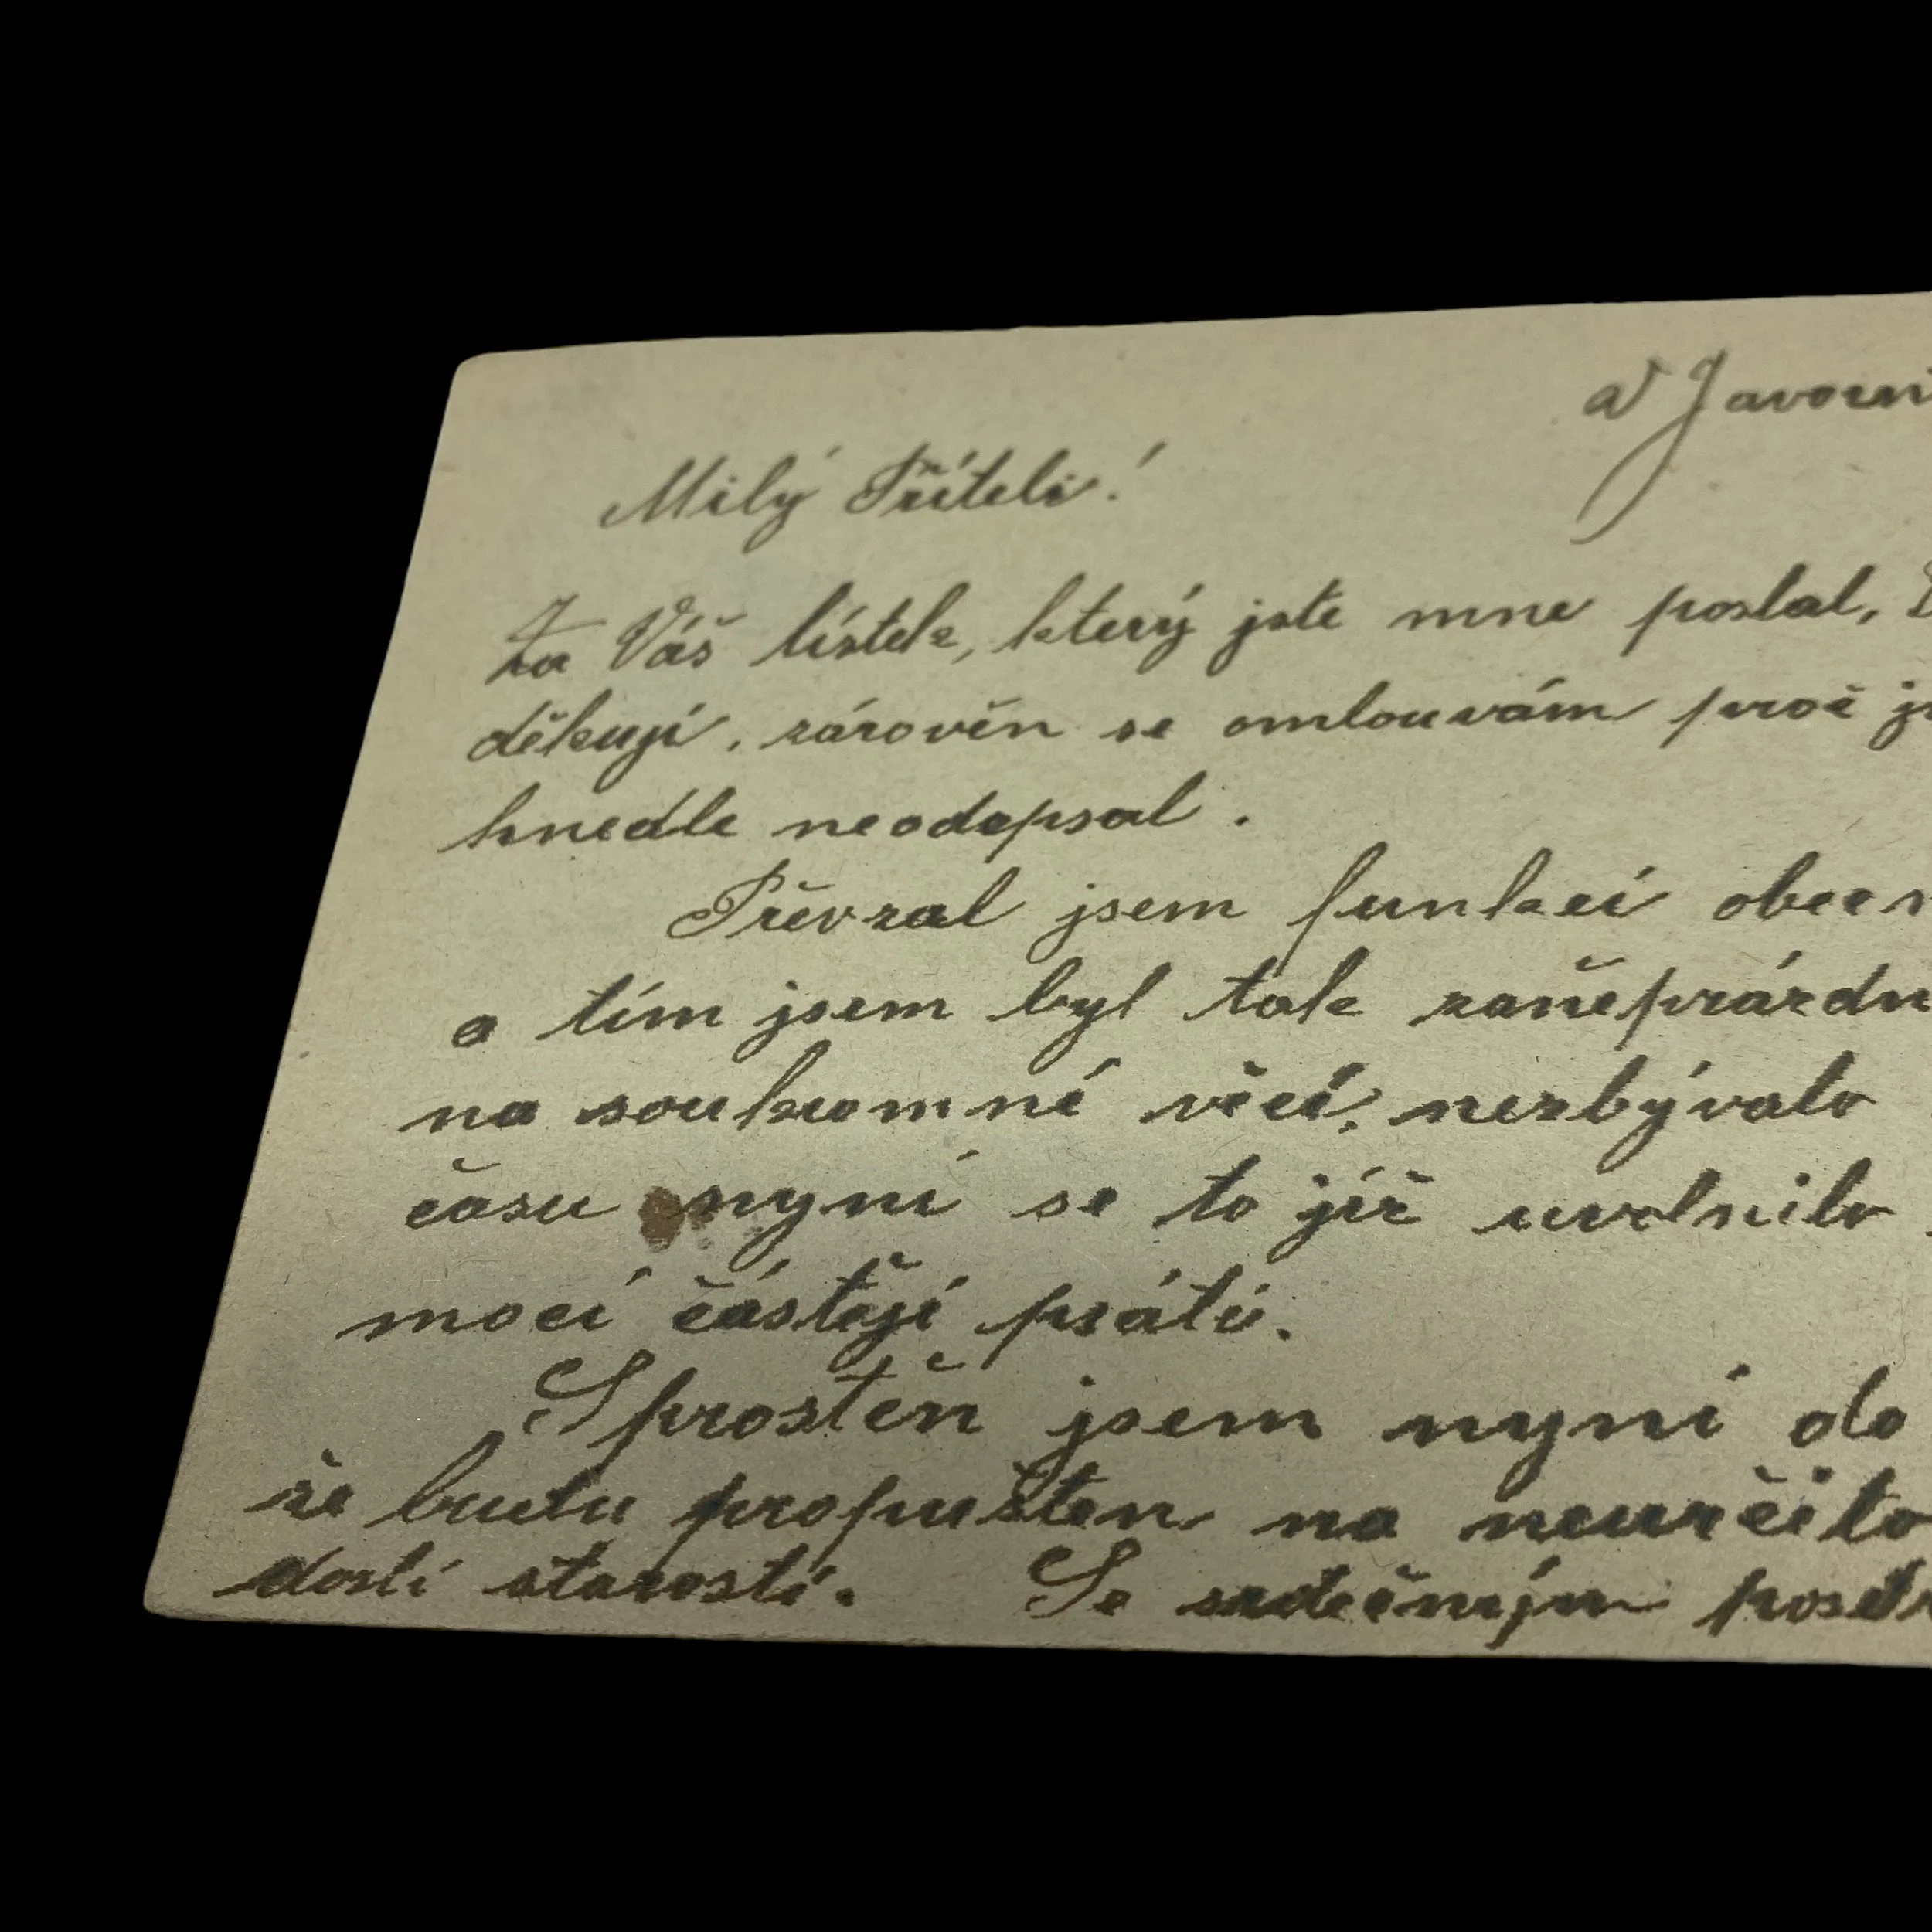 V Javorn
Milý Příteli!
Za Váš lístek, který jste mne poslal,
děkuji, zárověn se omlouvám proč js
hnedle neodepsal.
Převzal jsem funkci obecn
a tím jsem byl tak zaněprázdn
na soukromné věcí, nezbývalo
času nyní se to jíž uvolnilo
mocí částěji psáti.
Sprostěn jsem nyní do
že budu propuštěn na neurčito
dosti starostí. Se srdečným pozdr